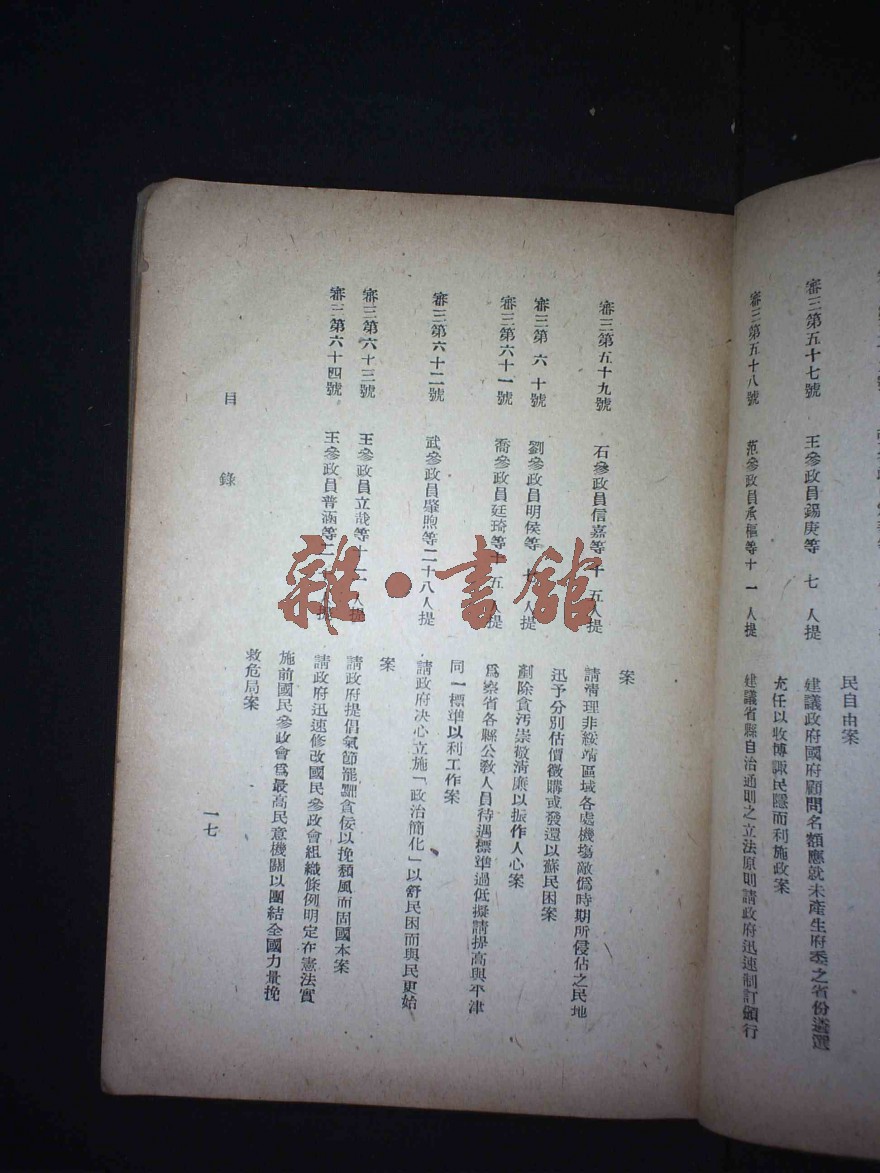 民自由案
審三第五十七號 王參政員錫庚等 七 人提 建議政府國府顧問名額應就未產生府委之省份遴選
充任以收博諏民隱而利施政案
審三第五十八號 范參政員承樞等十 一 人提 建議省縣自治通則之立法原則請政府迅速制訂頒行
案
審三第五十九號 石參政員信嘉等十五人提 請清理非綏靖區域各處機塲敵僞時期所侵佔之民地
迅予分別估價徵購或發還以蘇民困案
審三第 六 十號 劉參政員明侯等 人提 剷除貪汚崇敬淸廉以振作人心案
審三第六十一號 喬參政員廷琦等十五人提 爲察省各縣公敎人員待遇標準過低擬請提高與平津
同一標準以利工作案
審三第六十二號 武參政員肇煦等二十八人提 請政府决心立施「政治簡化」以舒民困而與民更始
案
審三第六十三號 王參政員立哉等十二人提 請政府提倡氣節罷黜貪佞以挽頽風而固國本案
審三第六十四號 王參政員普涵等二 人提 請政府迅速修改國民參政會組織條例明定在憲法實
施前國民參政會爲最高民意機關以團結全國力量挽
救危局案
目錄
一七
雜·書館